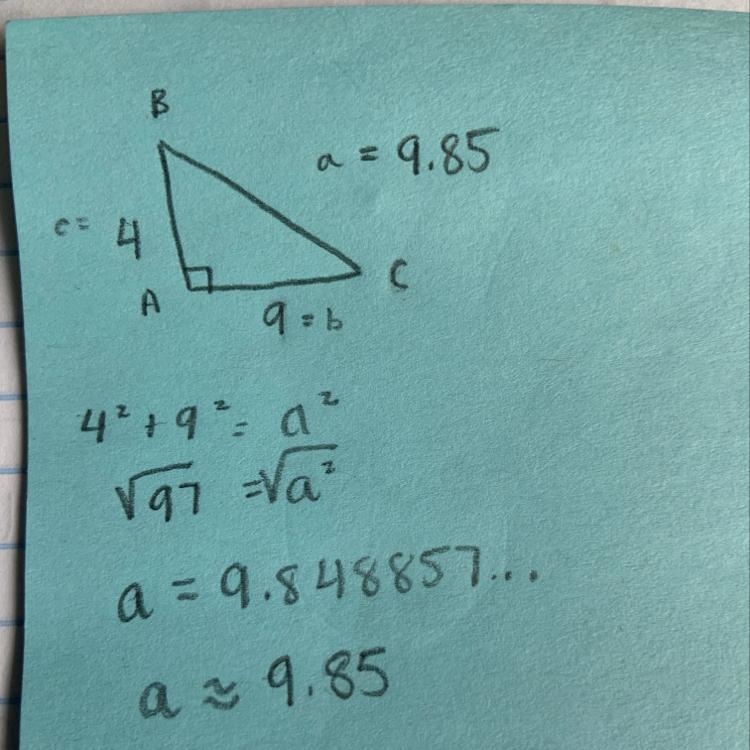 B
a = 9.85
c = 4
A
C
9 = b
4² + 9² = a²
√97 = √a²
a = 9.848857...
a ≈ 9.85